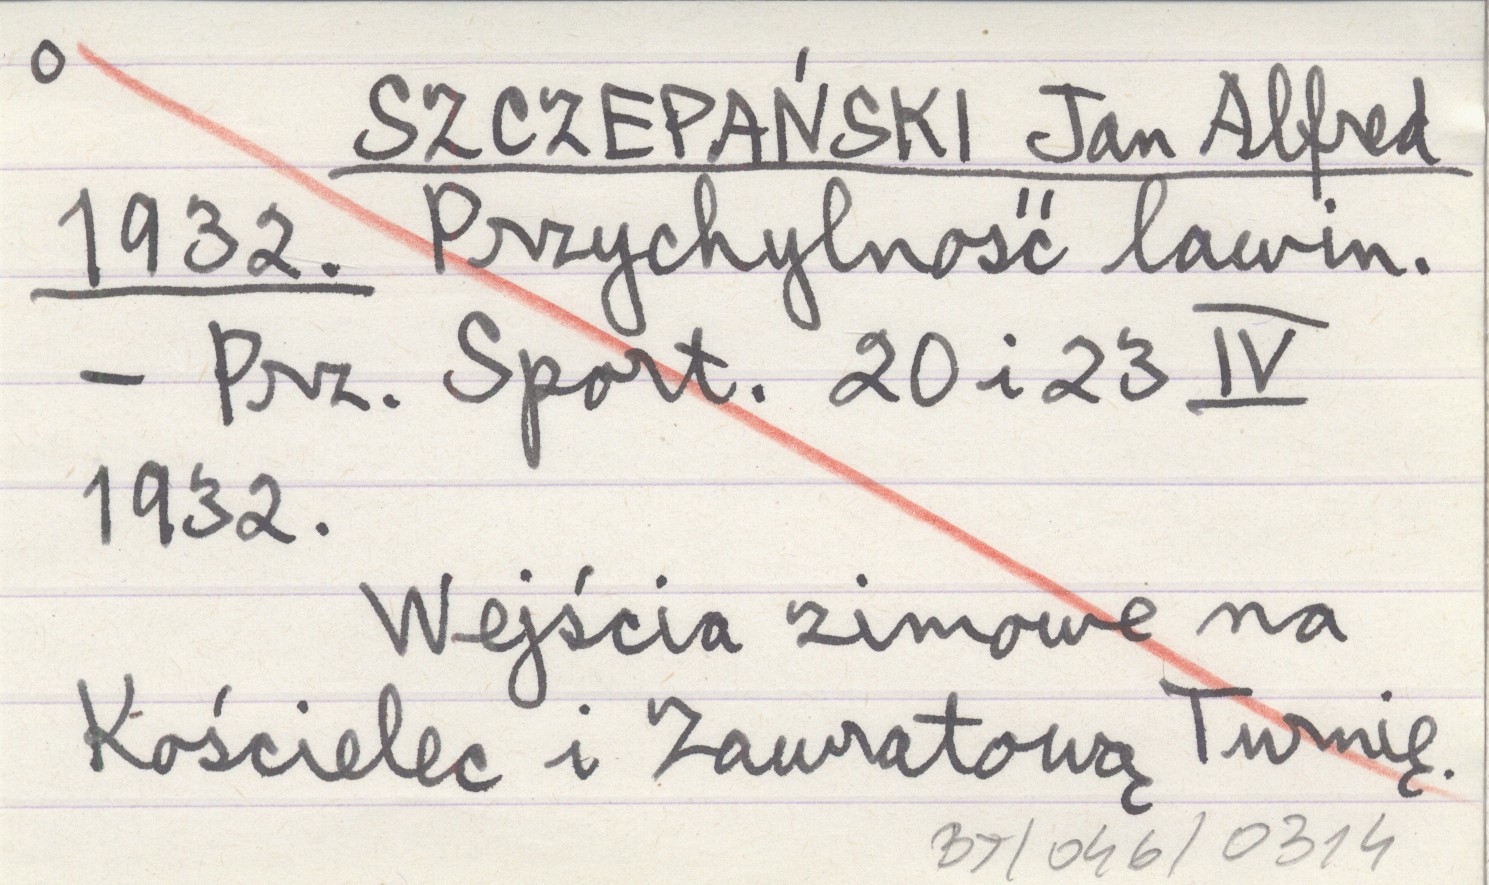 o
SZCZEPAŃSKI Jan Alfred
1932. Przychylność lawin.
- Prz. Sport. 20 i 23 IV
1932.
Wejścia zimowe na
Kościelec i Zawratową Turnię.
BT/046/0314